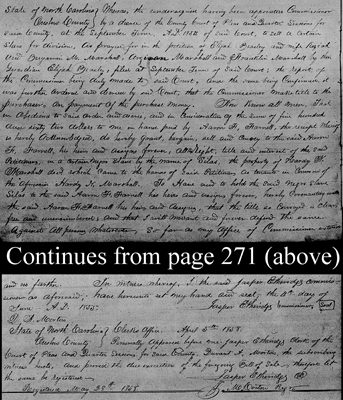 State of North Carolina } Whereas, the undersigned having been appointed Commissioner
County } by a decree of the County Court of Pleas and Quarter Sessions for
said County, at the September Term, A.D. 1852 of said Court, to sell a certain
Slave for division, as prayed for in the petition of Elijah and wife
and Benjamin M. Marshall, Marshall and Marshall by their
Guardian Elijah, filed at September Term of said Court; the report of
the Commissioner being duly made to said Court, & the same being confirmed it
was further ordered and decreed by said Court, that the Commissioner make title to the
purchaser on payment of the purchase money. Now Know all men, that
in Obedience to said Order and decree, and in Consideration of the sum of five hundred
and sixty two dollars to me in hand paid by Aaron F. Farnell, the receipt thereof
is hereby acknowledged, do hereby grant bargain, sell and convey to the said Aaron
F. Farnell, his heirs and assigns forever, all right, title and interest of the said
Petitioners, in a certain negro Slave by the name of Silas, the property of
Marshall died which came to the hands of said Petitioners as tenants in Common of
the aforesaid M. Marshall. To Have and to hold the said negro Slave
Silas to the said Aaron F. Farnell his heirs and assigns forever, hereby
the said Aaron F. Farnell his heirs and assigns, that the title so conveyed is clear
free and unencumbered; and that I will warrant and forever defend the same
against all persons whatsoever, so far as my office of Commissioner extends
Continues from page 271 (above)
and no further. In witness whereof, I the said Jasper Etheridge commis-
sioner as aforesaid, have hereunto set my hand and seal, the 8th day of
June A.D. 1855. Jasper Etheridge Seal
D. A. Morton
State of North Carolina } Clerks Office April 5th 1858.
County } Personally appeared before me Jasper Etheridge Clerk of the
Court of Pleas and Quarter Sessions for said County, Durant A. Morton, the subscribing
witness hereto, and proved the due execution of the foregoing Bill of Sale, therefore let
the same be registered. Jasper Etheridge Clk
Registered May 25th 1858. Morton Regr